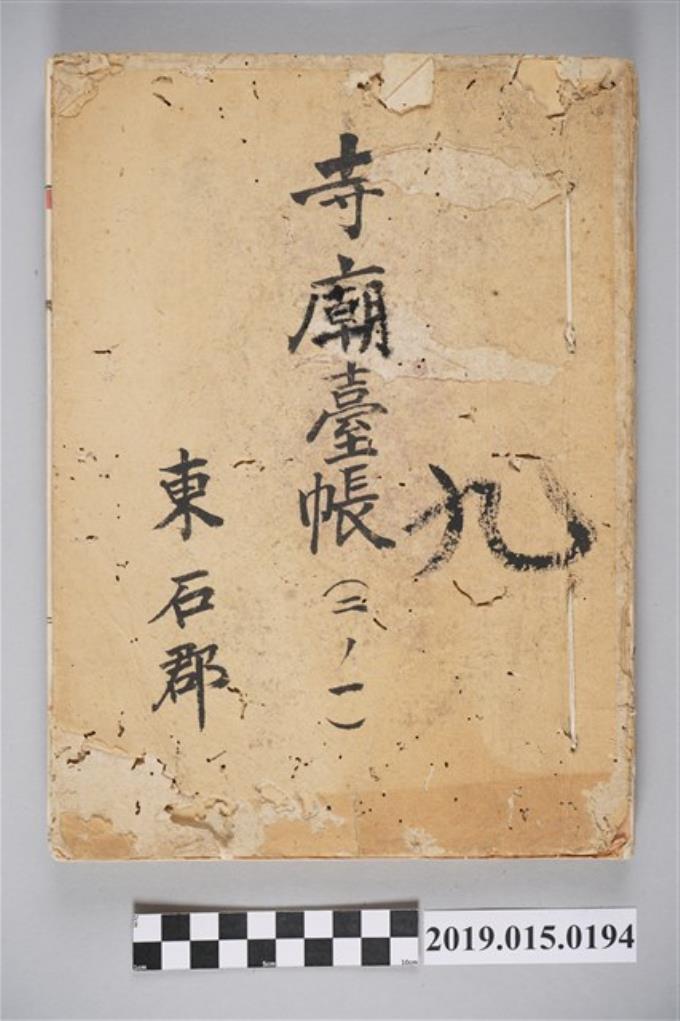 九
寺廟臺帳(二ノ一)
東石郡
0cm 5cm 10cm
2019.015.0194